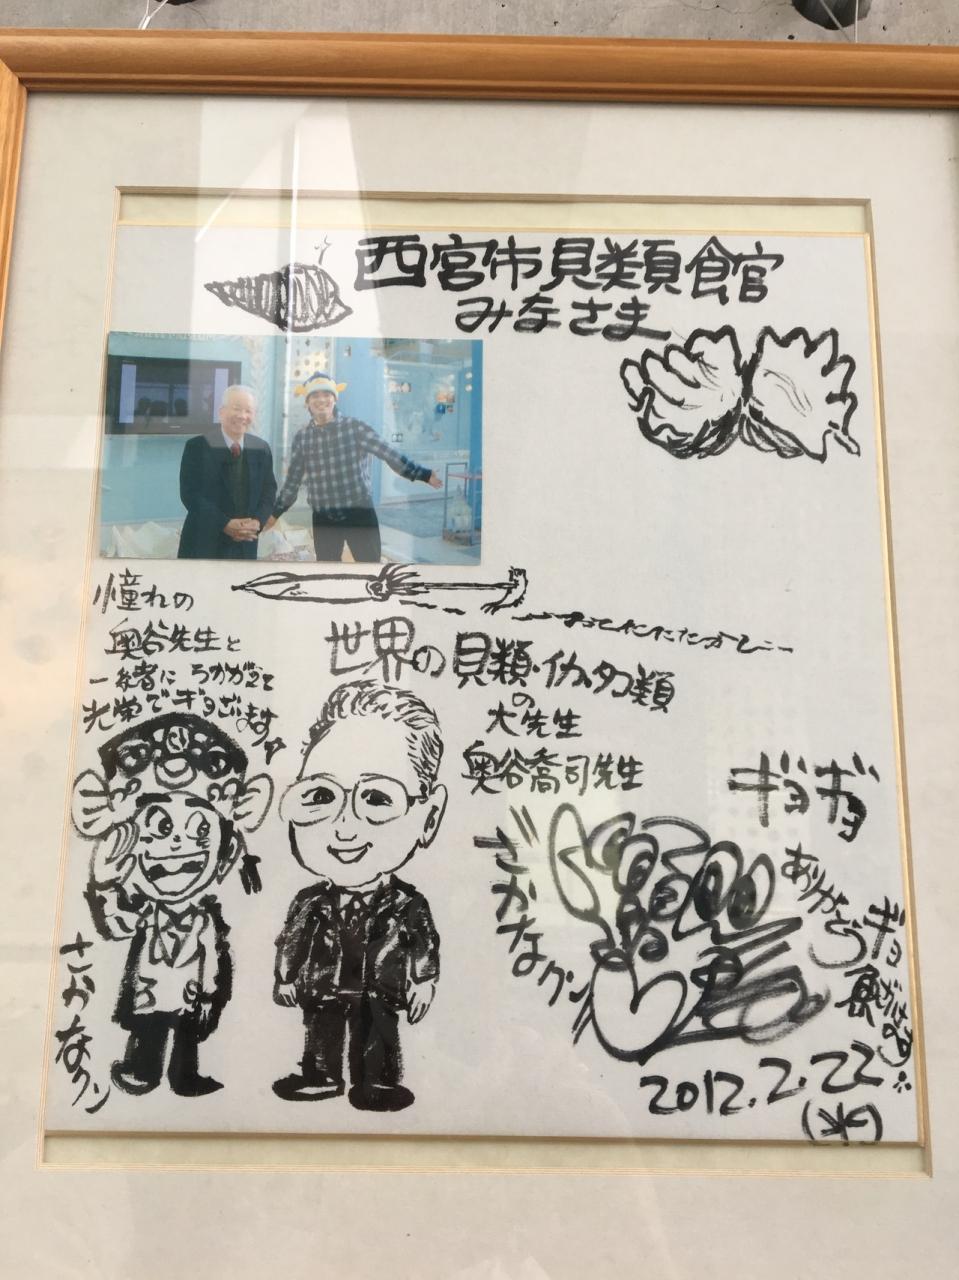 西宮市貝類館
みなさま
憧れの
奥谷先生と
一緒に うかがえて
光栄でギョざいます
世界の貝類・イカ、タコ類
の
大先生
奥谷喬司先生
さかなクン
ギョギョ
さかなクン
ありがとう
ギョ
ざいます
2012.2.22
(水)